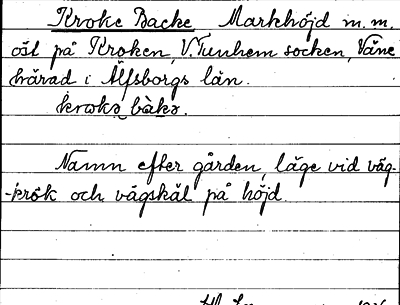 Kroke Backe Markhöjd m.m.
öst på Kroken, V. Tunhem socken, Väne
härad i Älfsborgs län.
krokə bàkə.
Namn efter gården, läge vid väg-
-krök och vägskäl på höjd.